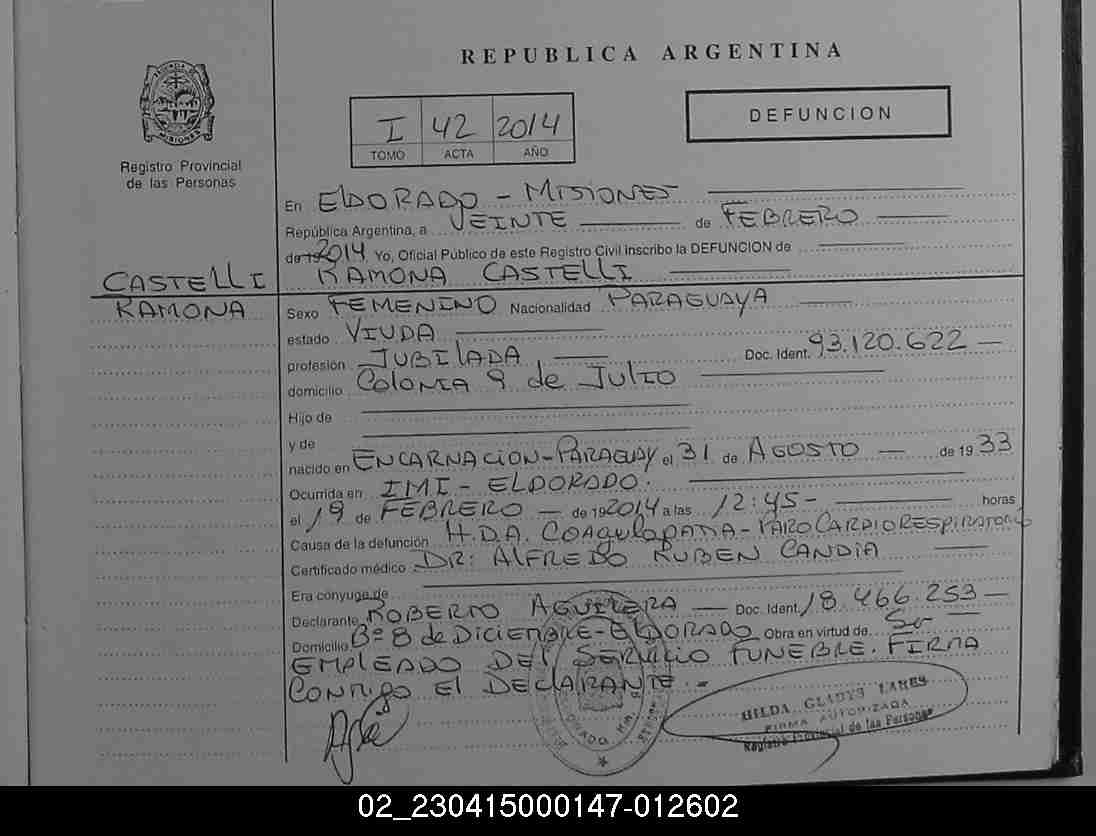 REPUBLICA ARGENTINA
DEFUNCION
I 42 2014
TOMO ACTA AÑO
MISIONES
Registro Provincial
de las Personas
En ELDORADO - MISIONES
República Argentina, a VEINTE de FEBRERO
de 19 2014 Yo, Oficial Público de este Registro Civil inscribo la DEFUNCION de
CASTELLI RAMONA CASTELLI
RAMONA Sexo FEMENINO Nacionalidad PARAGUAYA
estado VIUDA
profesión JUBILADA Doc. Ident. 93.120.622
domicilio Colonia 9 de Julio
Hijo de
y de
nacido en ENCARNACION-PARAGUAY el 31 de AGOSTO de 19 33
Ocurrida en IMI - ELDORADO.
el 19 de FEBRERO de 19 2014 a las 12:45 - horas
Causa de la defunción H.D.A. COAGULOPATIA - PARO CARDIORESPIRATORIO
Certificado médico DR: ALFREDO RUBEN CANDIA
Era cónyuge de
Declarante ROBERTO AGUILERA Doc. Ident. 18.466.253
Domicilio Bº 8 de DICIEMBRE-ELDORADO Obra en virtud de Ser
EMPLEADO DEL SERVICIO FUNEBRE. FIRMA
CONMIGO EL DECLARANTE.-
HILDA GLADYS LARES
FIRMA AUTORIZADA
Registro Provincial de las Personas
02_230415000147-012602